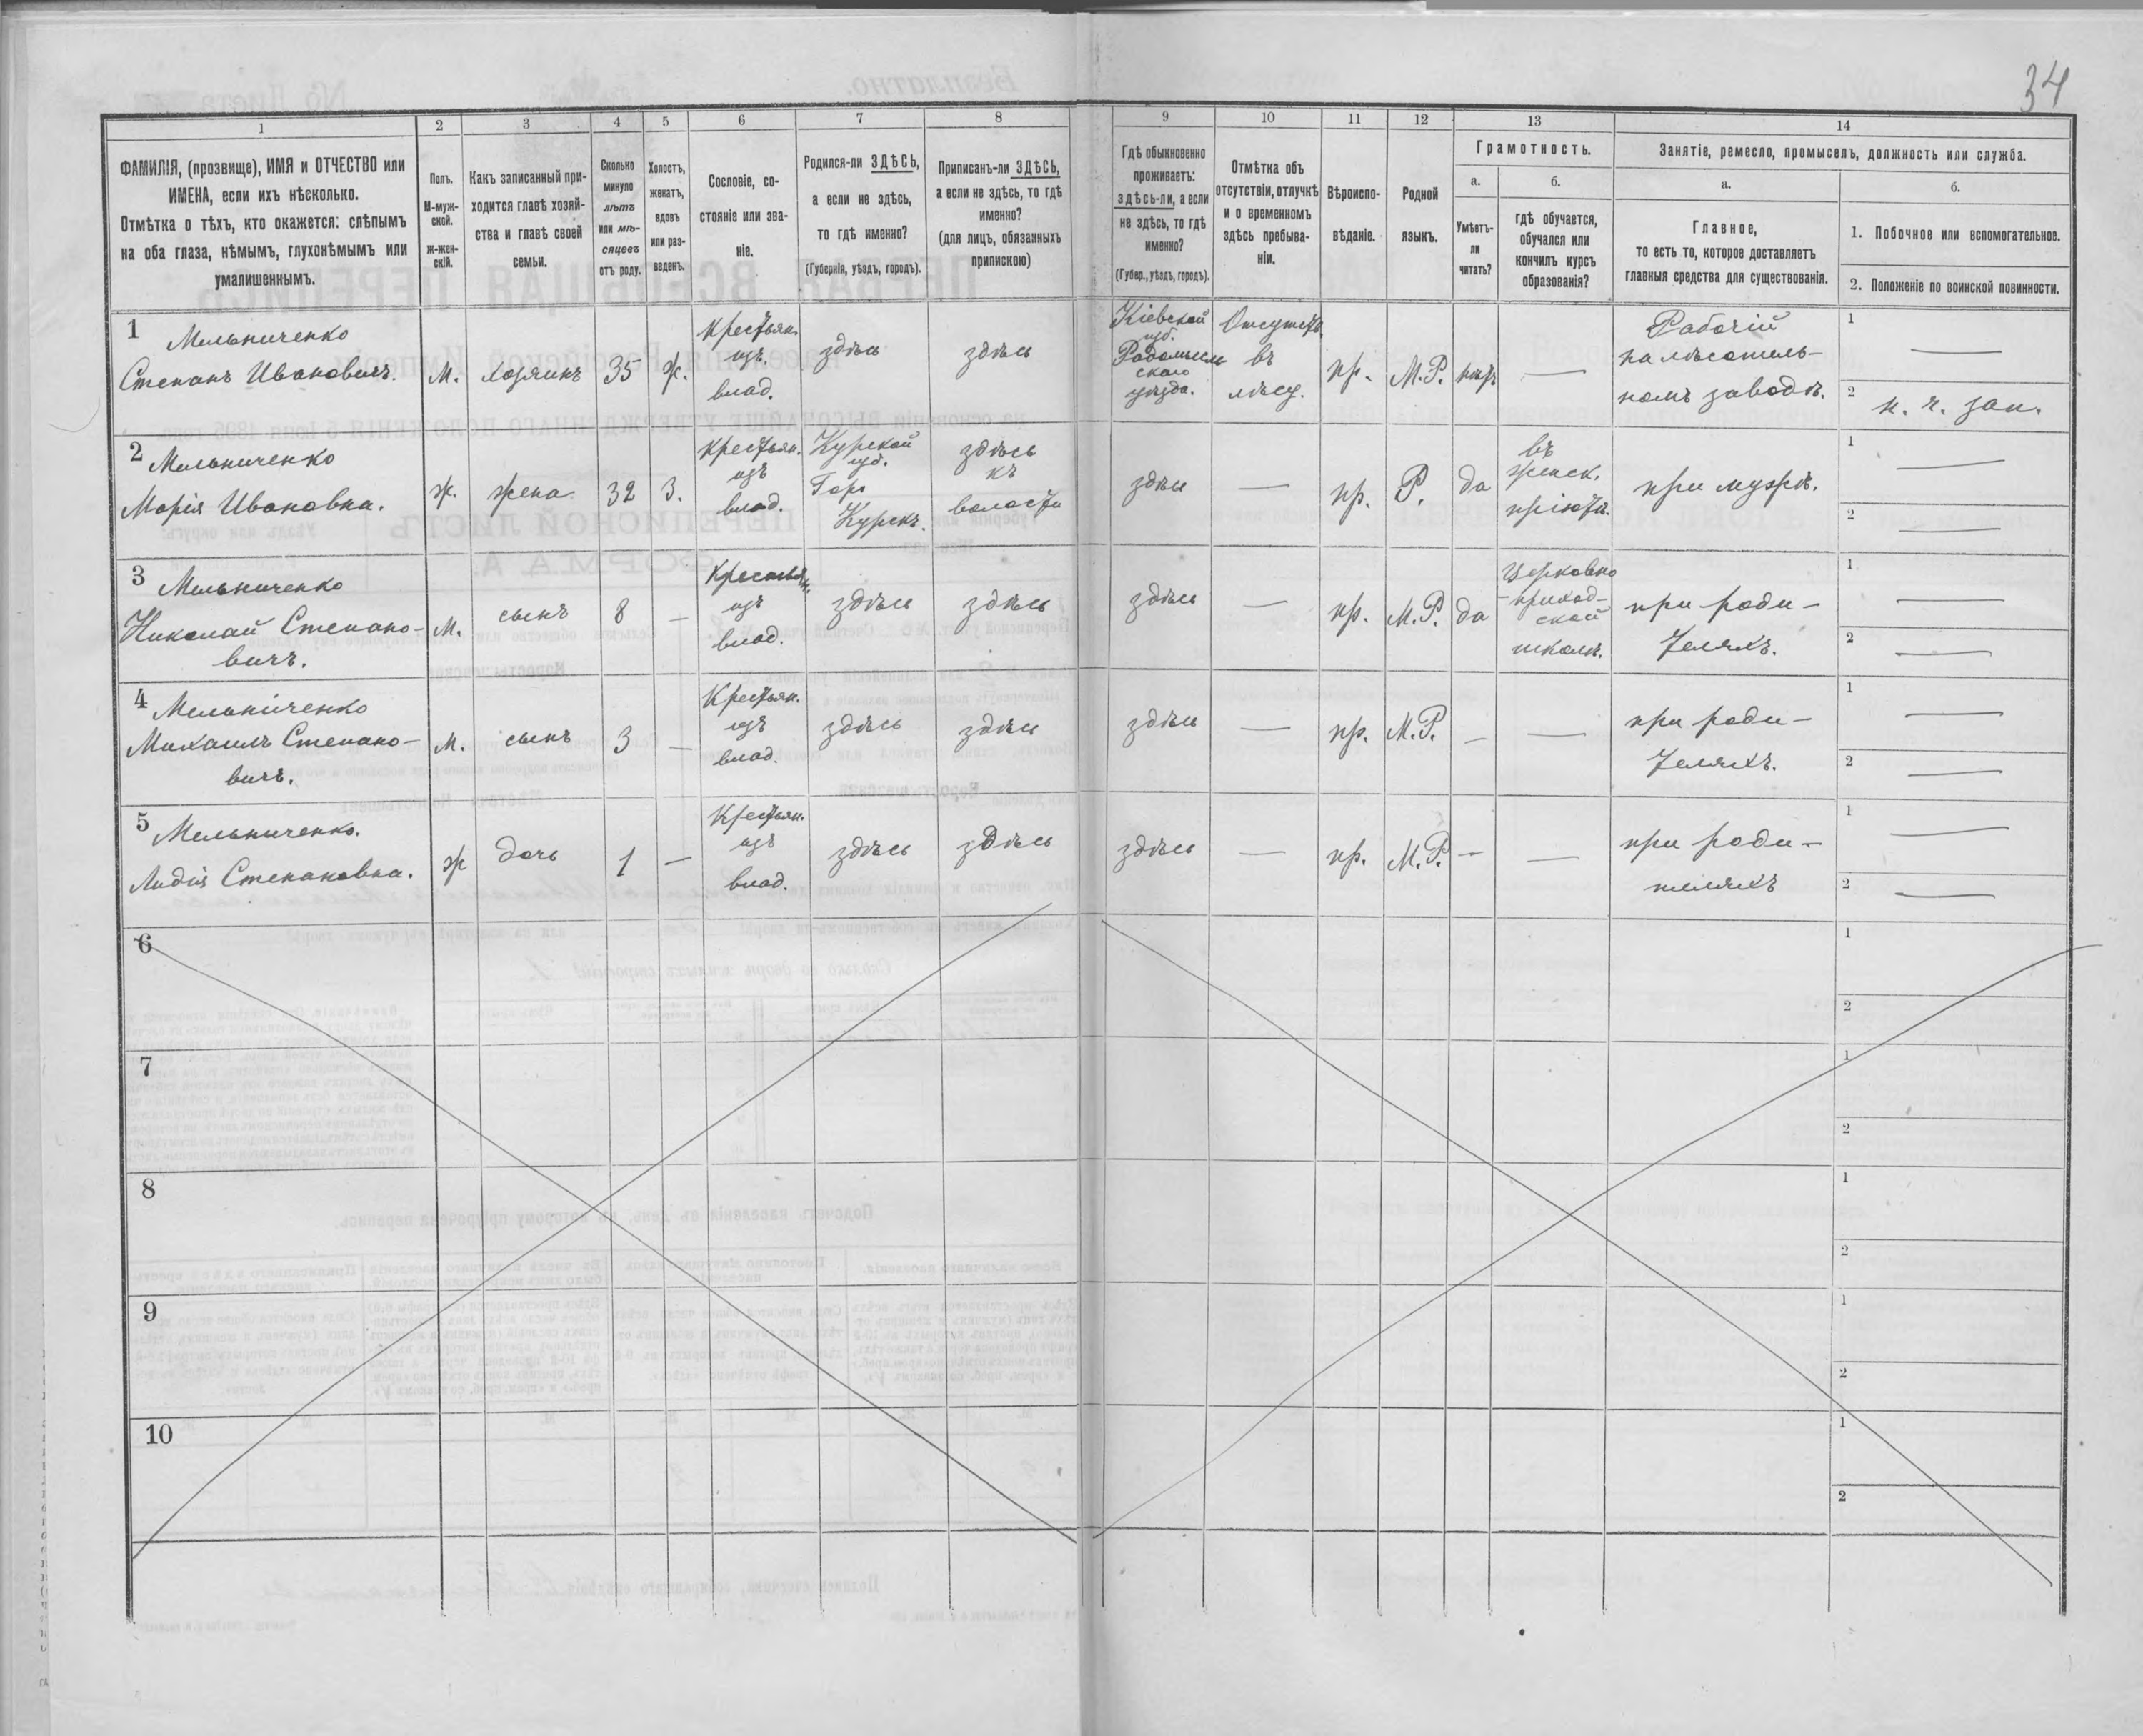 34
1
2
3
4
5
6
7
8
9
10
11
12
13
14
ФАМИЛІЯ, (прозвище), ИМЯ и ОТЧЕСТВО или
ИМЕНА, если ихъ нѣсколько.
Отмѣтка о тѣхъ, кто окажется: слѣпымъ
на оба глаза, нѣмымъ, глухонѣмымъ или
умалишеннымъ.
Полъ.
М-муж-
ской.
ж-жен-
скій.
Какъ записанный при-
ходится главѣ хозяй-
ства и главѣ своей
семьи.
Сколько
минуло
лѣтъ
или мѣ-
сяцевъ
отъ роду.
Холостъ,
женатъ,
вдовъ
или раз-
веденъ.
Сословіе, со-
стояніе или зва-
ніе.
Родился-ли ЗДѢСЬ,
а если не здѣсь,
то гдѣ именно?
(Губернія, уѣздъ, городъ).
Приписанъ-ли ЗДѢСЬ,
а если не здѣсь, то гдѣ
именно?
(для лицъ, обязанныхъ
припискою)
Гдѣ обыкновенно
проживаетъ:
здѣсь-ли, а если
не здѣсь, то гдѣ
именно?
(Губер., уѣздъ, городъ).
Отмѣтка объ
отсутствіи, отлучкѣ
и о временномъ
здѣсь пребыва-
ніи.
Вѣроиспо-
вѣданіе.
Родной
языкъ.
Грамотность.
а.
Умѣетъ-
ли
читать?
б.
гдѣ обучается,
обучался или
кончилъ курсъ
образованія?
Занятіе, ремесло, промыселъ, должность или служба.
а.
Главное,
то есть то, которое доставляетъ
главныя средства для существованія.
б.
1. Побочное или вспомогательное.
2. Положеніе по воинской повинности.
1
Мельниченко
Степанъ Ивановичъ.
М.
хозяинъ
35
ж.
Крестьян.
изъ
влад.
здѣсь
здѣсь
Кіевской
губ.
Радомысль
скаго
уѣзда.
Отсутств.
въ
лѣсу.
пр.
М.Р.
нѣтъ
—
Рабочій
на лѣсопиль-
номъ заводѣ.
1 —
2 н. ч. зап.
2
Мельниченко
Марія Ивановна.
ж.
жена
32
З.
Крестьян.
изъ
влад.
Курской
губ.
Гор.
Курскъ.
здѣсь
къ
волости
здѣсь
—
пр.
Р.
да
въ
женск.
пріютѣ.
при мужѣ.
1 —
2 —
3
Мельниченко
Николай Степано-
вичъ.
М.
сынъ
8
—
Крестьян.
изъ
влад.
здѣсь
здѣсь
здѣсь
—
пр.
М.Р.
да
Церковно
-приход-
ской
школѣ.
при роди-
теляхъ.
1 —
2 —
4
Мельниченко
Михаилъ Степано-
вичъ.
М.
сынъ
3
—
Крестьян.
изъ
влад.
здѣсь
здѣсь
здѣсь
—
пр.
М.Р.
—
—
при роди-
теляхъ.
1 —
2 —
5
Мельниченко.
Лидія Степановна.
ж
дочь
1
—
Крестьян.
изъ
влад.
здѣсь
здѣсь
здѣсь
—
пр.
М.Р.
—
—
при роди-
теляхъ
1 —
2 —
6
1
2
7
1
2
8
1
2
9
1
2
10
1
2